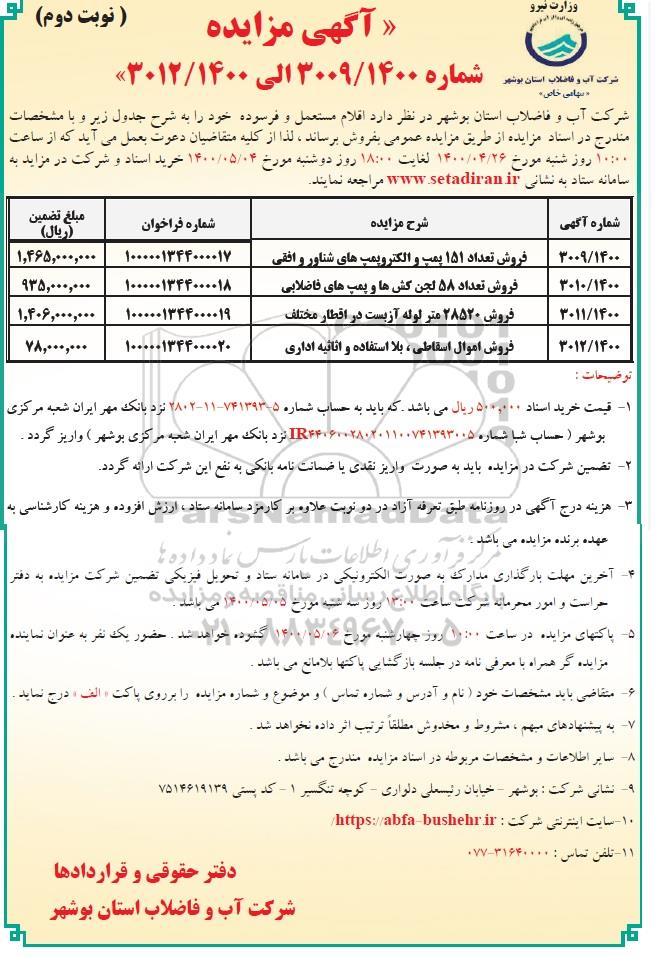 وزارت نیرو
شرکت آب و فاضلاب استان بوشهر
«سهامی خاص»
( نوبت دوم)
« آگهی مزایده
شماره ۳۰۰۹/۱۴۰۰ الی ۳۰۱۲/۱۴۰۰»
شرکت آب و فاضلاب استان بوشهر در نظر دارد اقلام مستعمل و فرسوده خود را به شرح جدول زیر و با مشخصات
مندرج در اسناد مزایده از طریق مزایده عمومی بفروش برساند ، لذا از کلیه متقاضیان دعوت بعمل می آید که از ساعت
۱۰:۰۰ روز شنبه مورخ ۱۴۰۰/۰۴/۲۶ لغایت ۱۸:۰۰ روز دوشنبه مورخ ۱۴۰۰/۰۵/۰۴ خرید اسناد و شرکت در مزاید به
سامانه ستاد به نشانی www.setadiran.ir مراجعه نمایند.
شماره آگهی شرح مزایده شماره فراخوان مبلغ تضمین (ریال)
۳۰۰۹/۱۴۰۰ فروش تعداد ۱۵۱ پمپ و الکتروپمپ های شناور و افقی ۱۰۰۰۰۰۱۳۴۴۰۰۰۰۱۷ ۱,۴۶۵,۰۰۰,۰۰۰
۳۰۱۰/۱۴۰۰ فروش تعداد ۵۸ لجن کش ها و پمپ های فاضلابی ۱۰۰۰۰۰۱۳۴۴۰۰۰۰۱۸ ۹۳۵,۰۰۰,۰۰۰
۳۰۱۱/۱۴۰۰ فروش ۲۸۵۲۰ متر لوله آزبست در اقطار مختلف ۱۰۰۰۰۰۱۳۴۴۰۰۰۰۱۹ ۱,۴۰۶,۰۰۰,۰۰۰
۳۰۱۲/۱۴۰۰ فروش اموال اسقاطی ، بلا استفاده و اثاثیه اداری ۱۰۰۰۰۰۱۳۴۴۰۰۰۰۲۰ ۷۸,۰۰۰,۰۰۰
توضیحات :
۱- قیمت خرید اسناد ۵۰۰,۰۰۰ ریال می باشد .که باید به حساب شماره ۵-۷۴۱۳۹۳-۱۱-۲۸۰۲ نزد بانک مهر ایران شعبه مرکزی
بوشهر ( حساب شبا شماره IR۴۴۰۶۰۰۲۸۰۲۰۱۱۰۰۷۴۱۳۹۳۰۰۵ نزد بانک مهر ایران شعبه مرکزی بوشهر ) واریز گردد .
۲- تضمین شرکت در مزایده باید به صورت واریز نقدی یا ضمانت نامه بانکی به نفع این شرکت ارائه گردد.
۳- هزینه درج آگهی در روزنامه طبق تعرفه آزاد در دو نوبت علاوه بر کارمزد سامانه ستاد ، ارزش افزوده و هزینه کارشناسی به
عهده برنده مزایده می باشد .
ParsNamadData
مرکز فرآوری اطلاعات پارس نماد داده ها
۴- آخرین مهلت بارگذاری مدارک به صورت الکترونیکی در سامانه ستاد و تحویل فیزیکی تضمین شرکت مزایده به دفتر
پایگاه اطلاع رسانی مناقصه و مزایده
حراست و امور محرمانه شرکت ساعت ۱۳:۰۰ روز سه شنبه مورخ ۱۴۰۰/۰۵/۰۵ می باشد .
۰۲۱-۸۸۳۴۹۶۷۰-۵
۵- پاکتهای مزایده در ساعت ۱۰:۰۰ روز چهارشنبه مورخ ۱۴۰۰/۰۵/۰۶ گشوده خواهد شد . حضور یک نفر به عنوان نماینده
مزایده گر همراه با معرفی نامه در جلسه بازگشایی پاکتها بلامانع می باشد .
۶- متقاضی باید مشخصات خود ( نام و آدرس و شماره تماس ) و موضوع و شماره مزایده را برروی پاکت « الف » درج نماید .
۷- به پیشنهادهای مبهم ، مشروط و مخدوش مطلقاً ترتیب اثر داده نخواهد شد .
۸- سایر اطلاعات و مشخصات مربوطه در اسناد مزایده مندرج می باشد .
۹- نشانی شرکت : بوشهر - خیابان رئیسعلی دلواری - کوچه تنگسیر ۱ - کد پستی ۷۵۱۴۶۱۹۱۳۹
۱۰-سایت اینترنتی شرکت : https://abfa-bushehr.ir/
۱۱-تلفن تماس : ۳۱۶۴۰۰۰۰-۰۷۷
دفتر حقوقی و قراردادها
شرکت آب و فاضلاب استان بوشهر